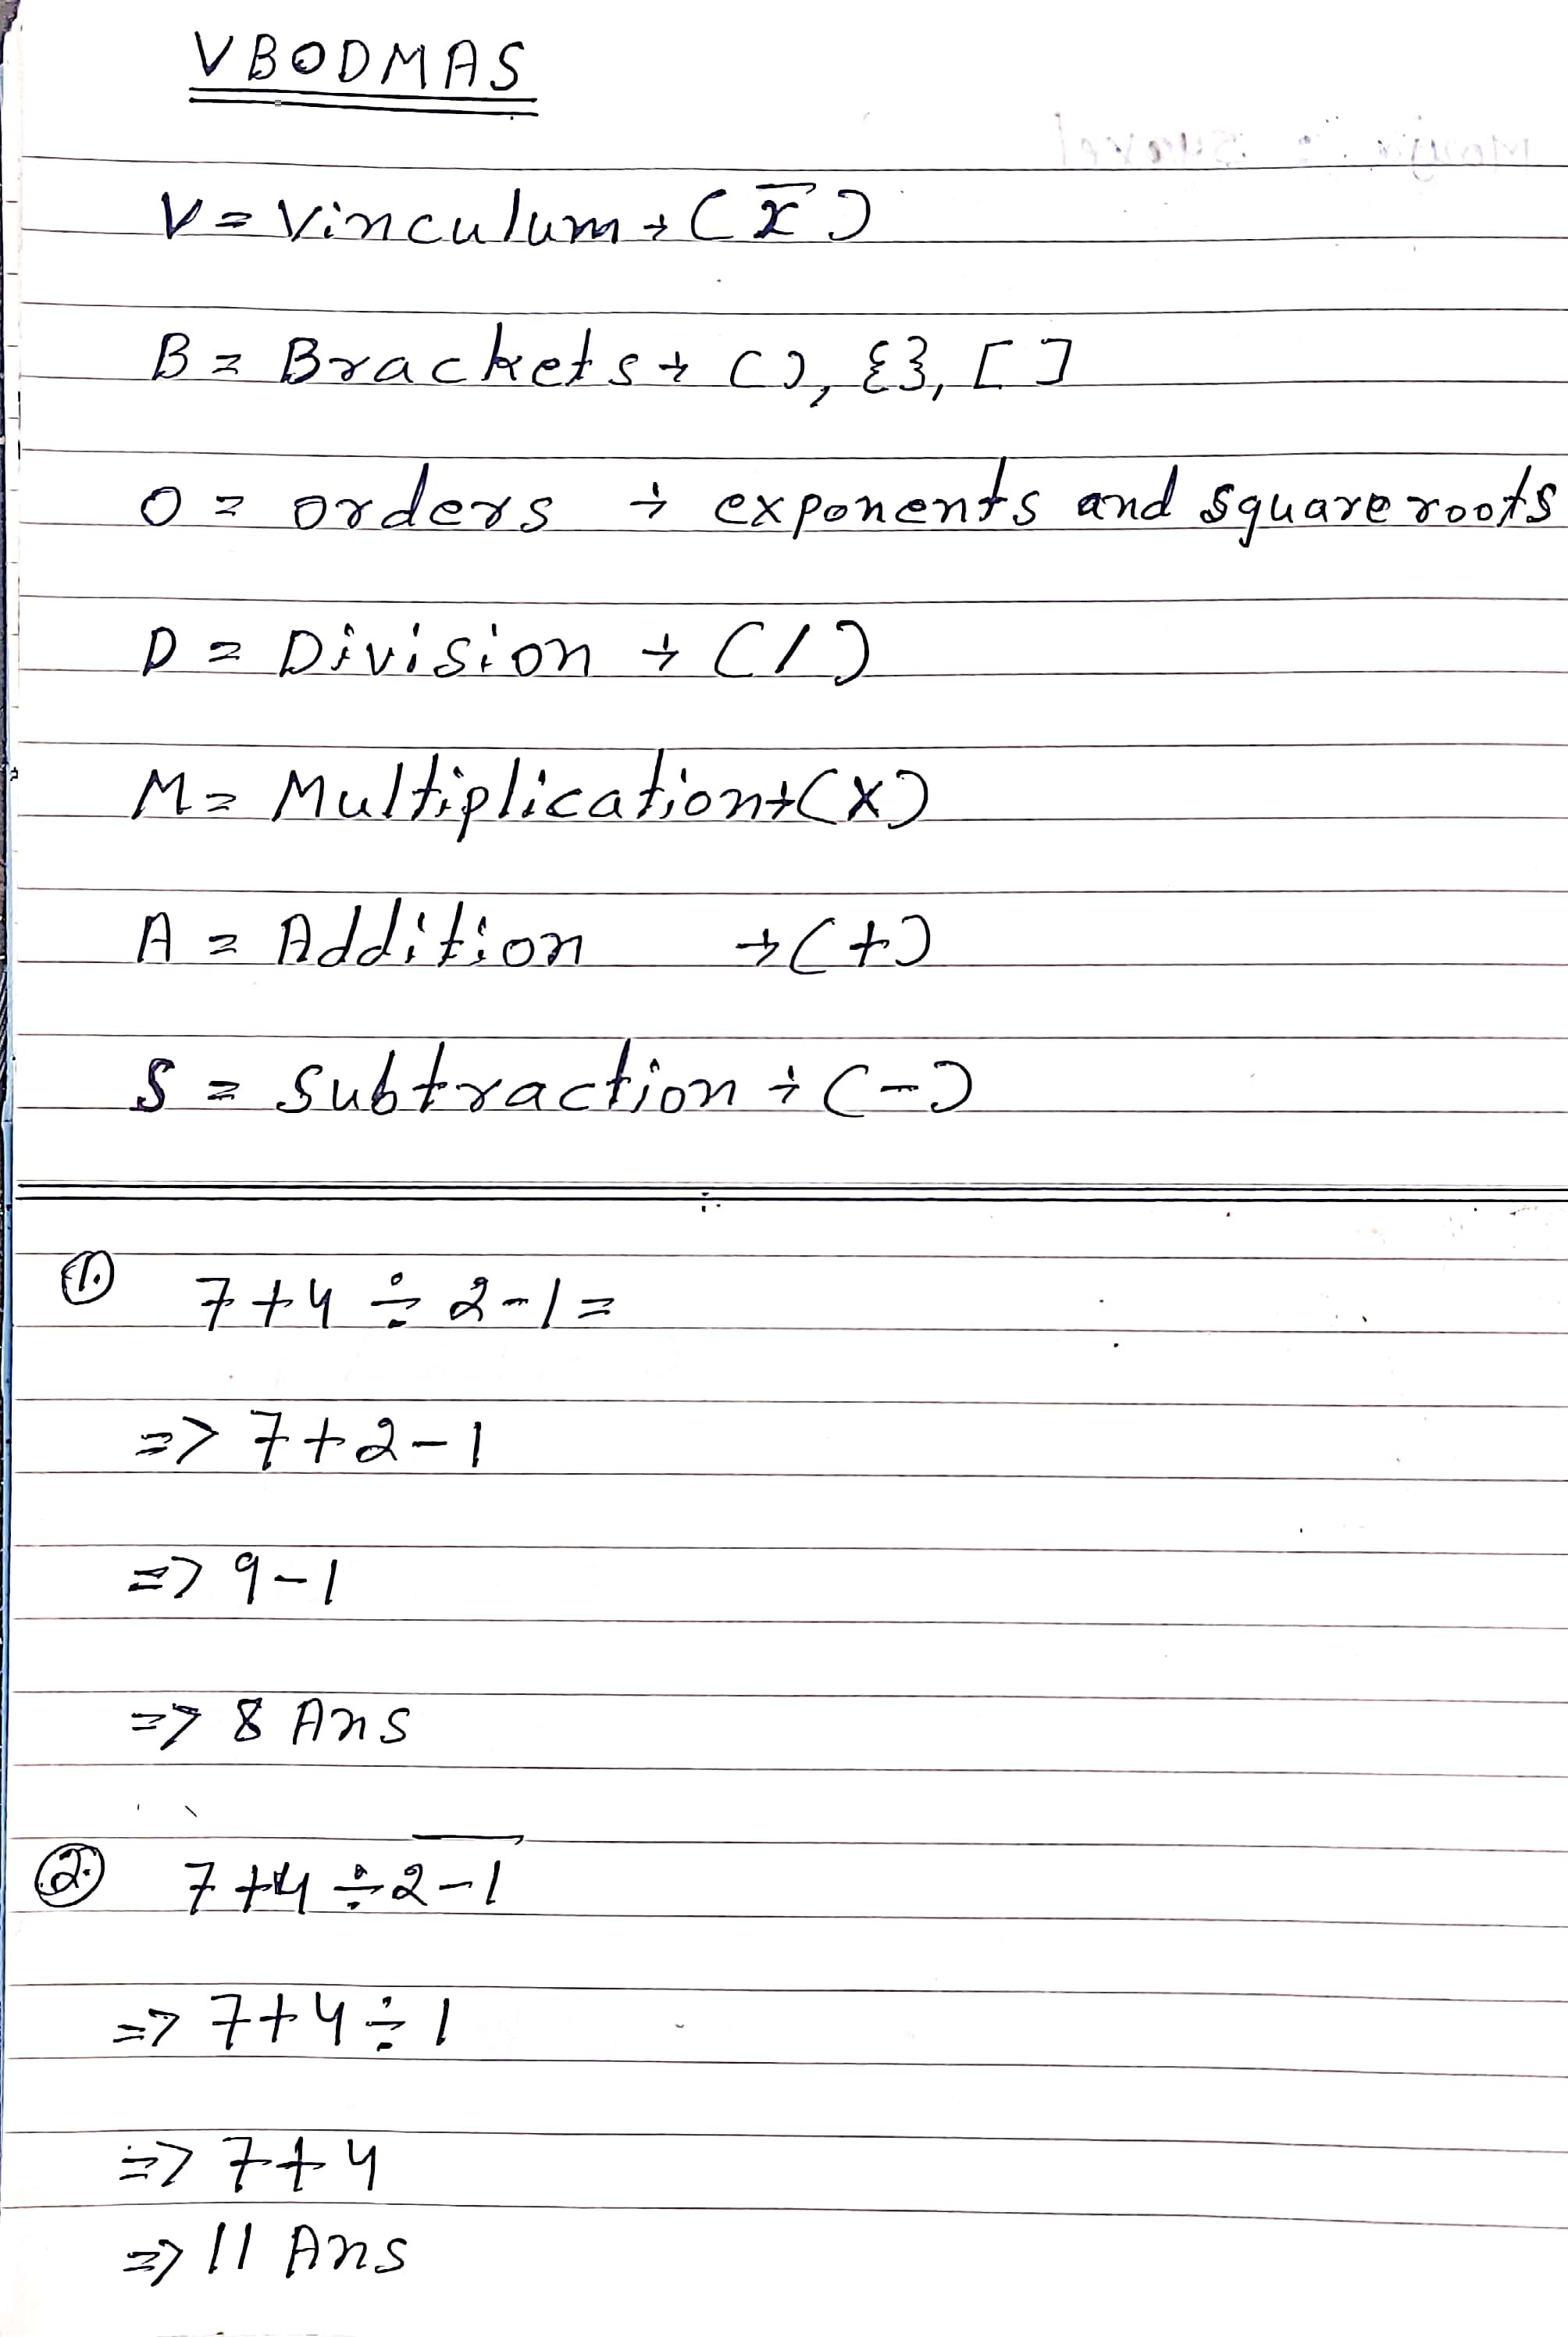 VBODMAS
V = Vinculum → (x̅)
B = Brackets → (), {}, []
O = orders → exponents and square roots
D = Division → (/)
M = Multiplication → (×)
A = Addition → (+)
S = Subtraction → (-)
①. 7+4 ÷ 2-1=
=> 7+2-1
=> 9-1
=> 8 Ans
②. 7+4÷2̅-̅1̅
=> 7+4÷1
=> 7+4
=> 11 Ans